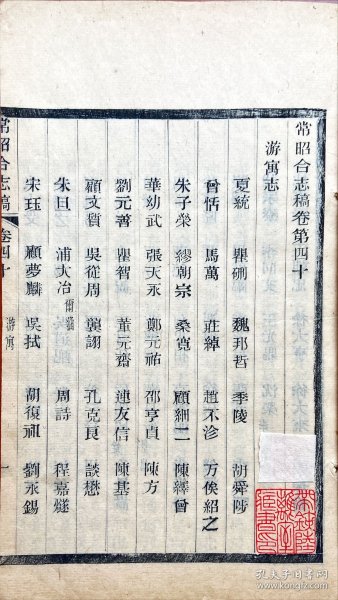 常昭合志稿卷第四十
游寓志
夏統 瞿硎 魏邦哲 季陵 胡舜陟
曾恬 馬萬 莊綽 趙不沴 万俟紹之
朱子榮 繆朝宗 桑寛 顧細二 陳繹曾
華幼武 張天永 鄭元祐 邵亨貞 陳方
劉元善 瞿智 董元齋 連友信 陳基
顧文質 吳從周 龔詡 孔克良 談懋
朱旦 浦大冶 周詩 程嘉燧
宋珏 顧夢麟 吳拭 胡復祖 劉永錫
常昭合志稿 卷四十 游寓 一
孔夫子旧书网